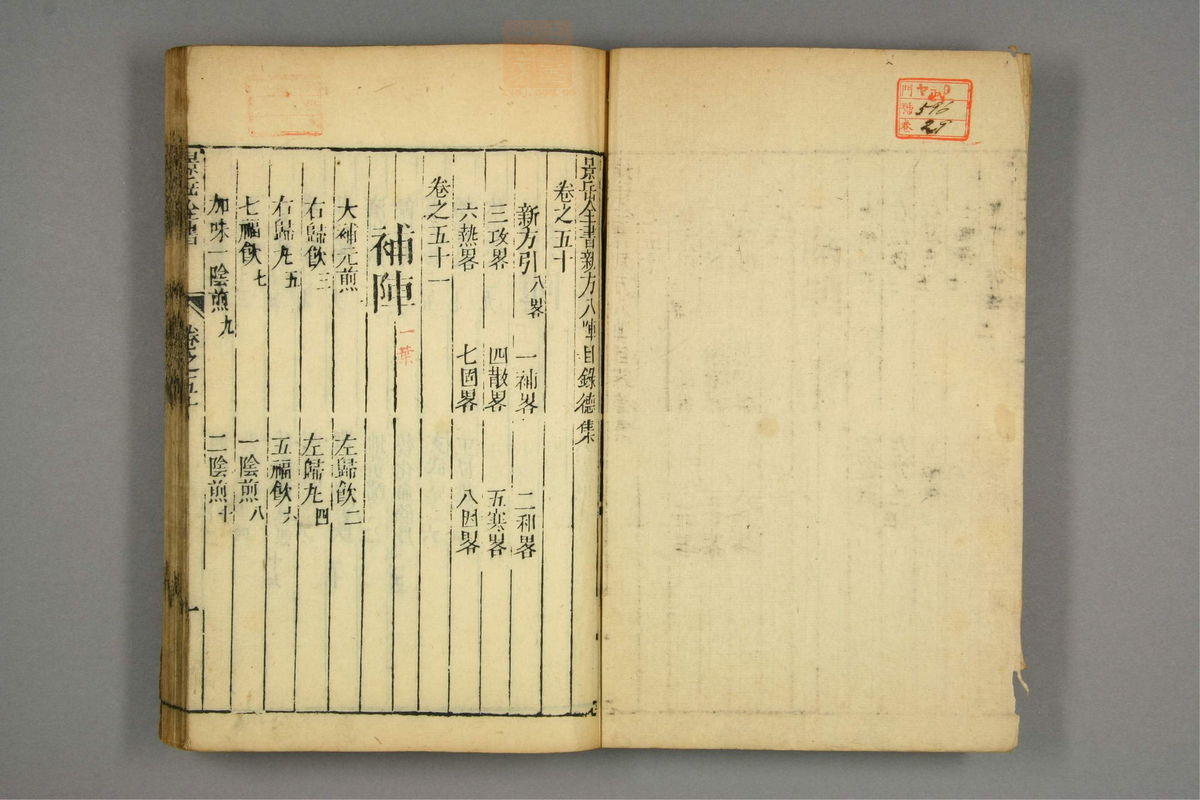 門
號 596
卷 29
景岳全書新方八陣目錄德集
卷之五十
新方引 八畧 一補畧 二和畧
三攻畧 四散畧 五寒畧
六熱畧 七固畧 八因畧
卷之五十一
補陣 一葉
大補元煎 一 左歸飮 二
右歸飮 三 左歸丸 四
右歸丸 五 五福飮 六
七福飮 七 一陰煎 八
加味一陰煎 九 二陰煎 十
景岳全書 卷之五十 一